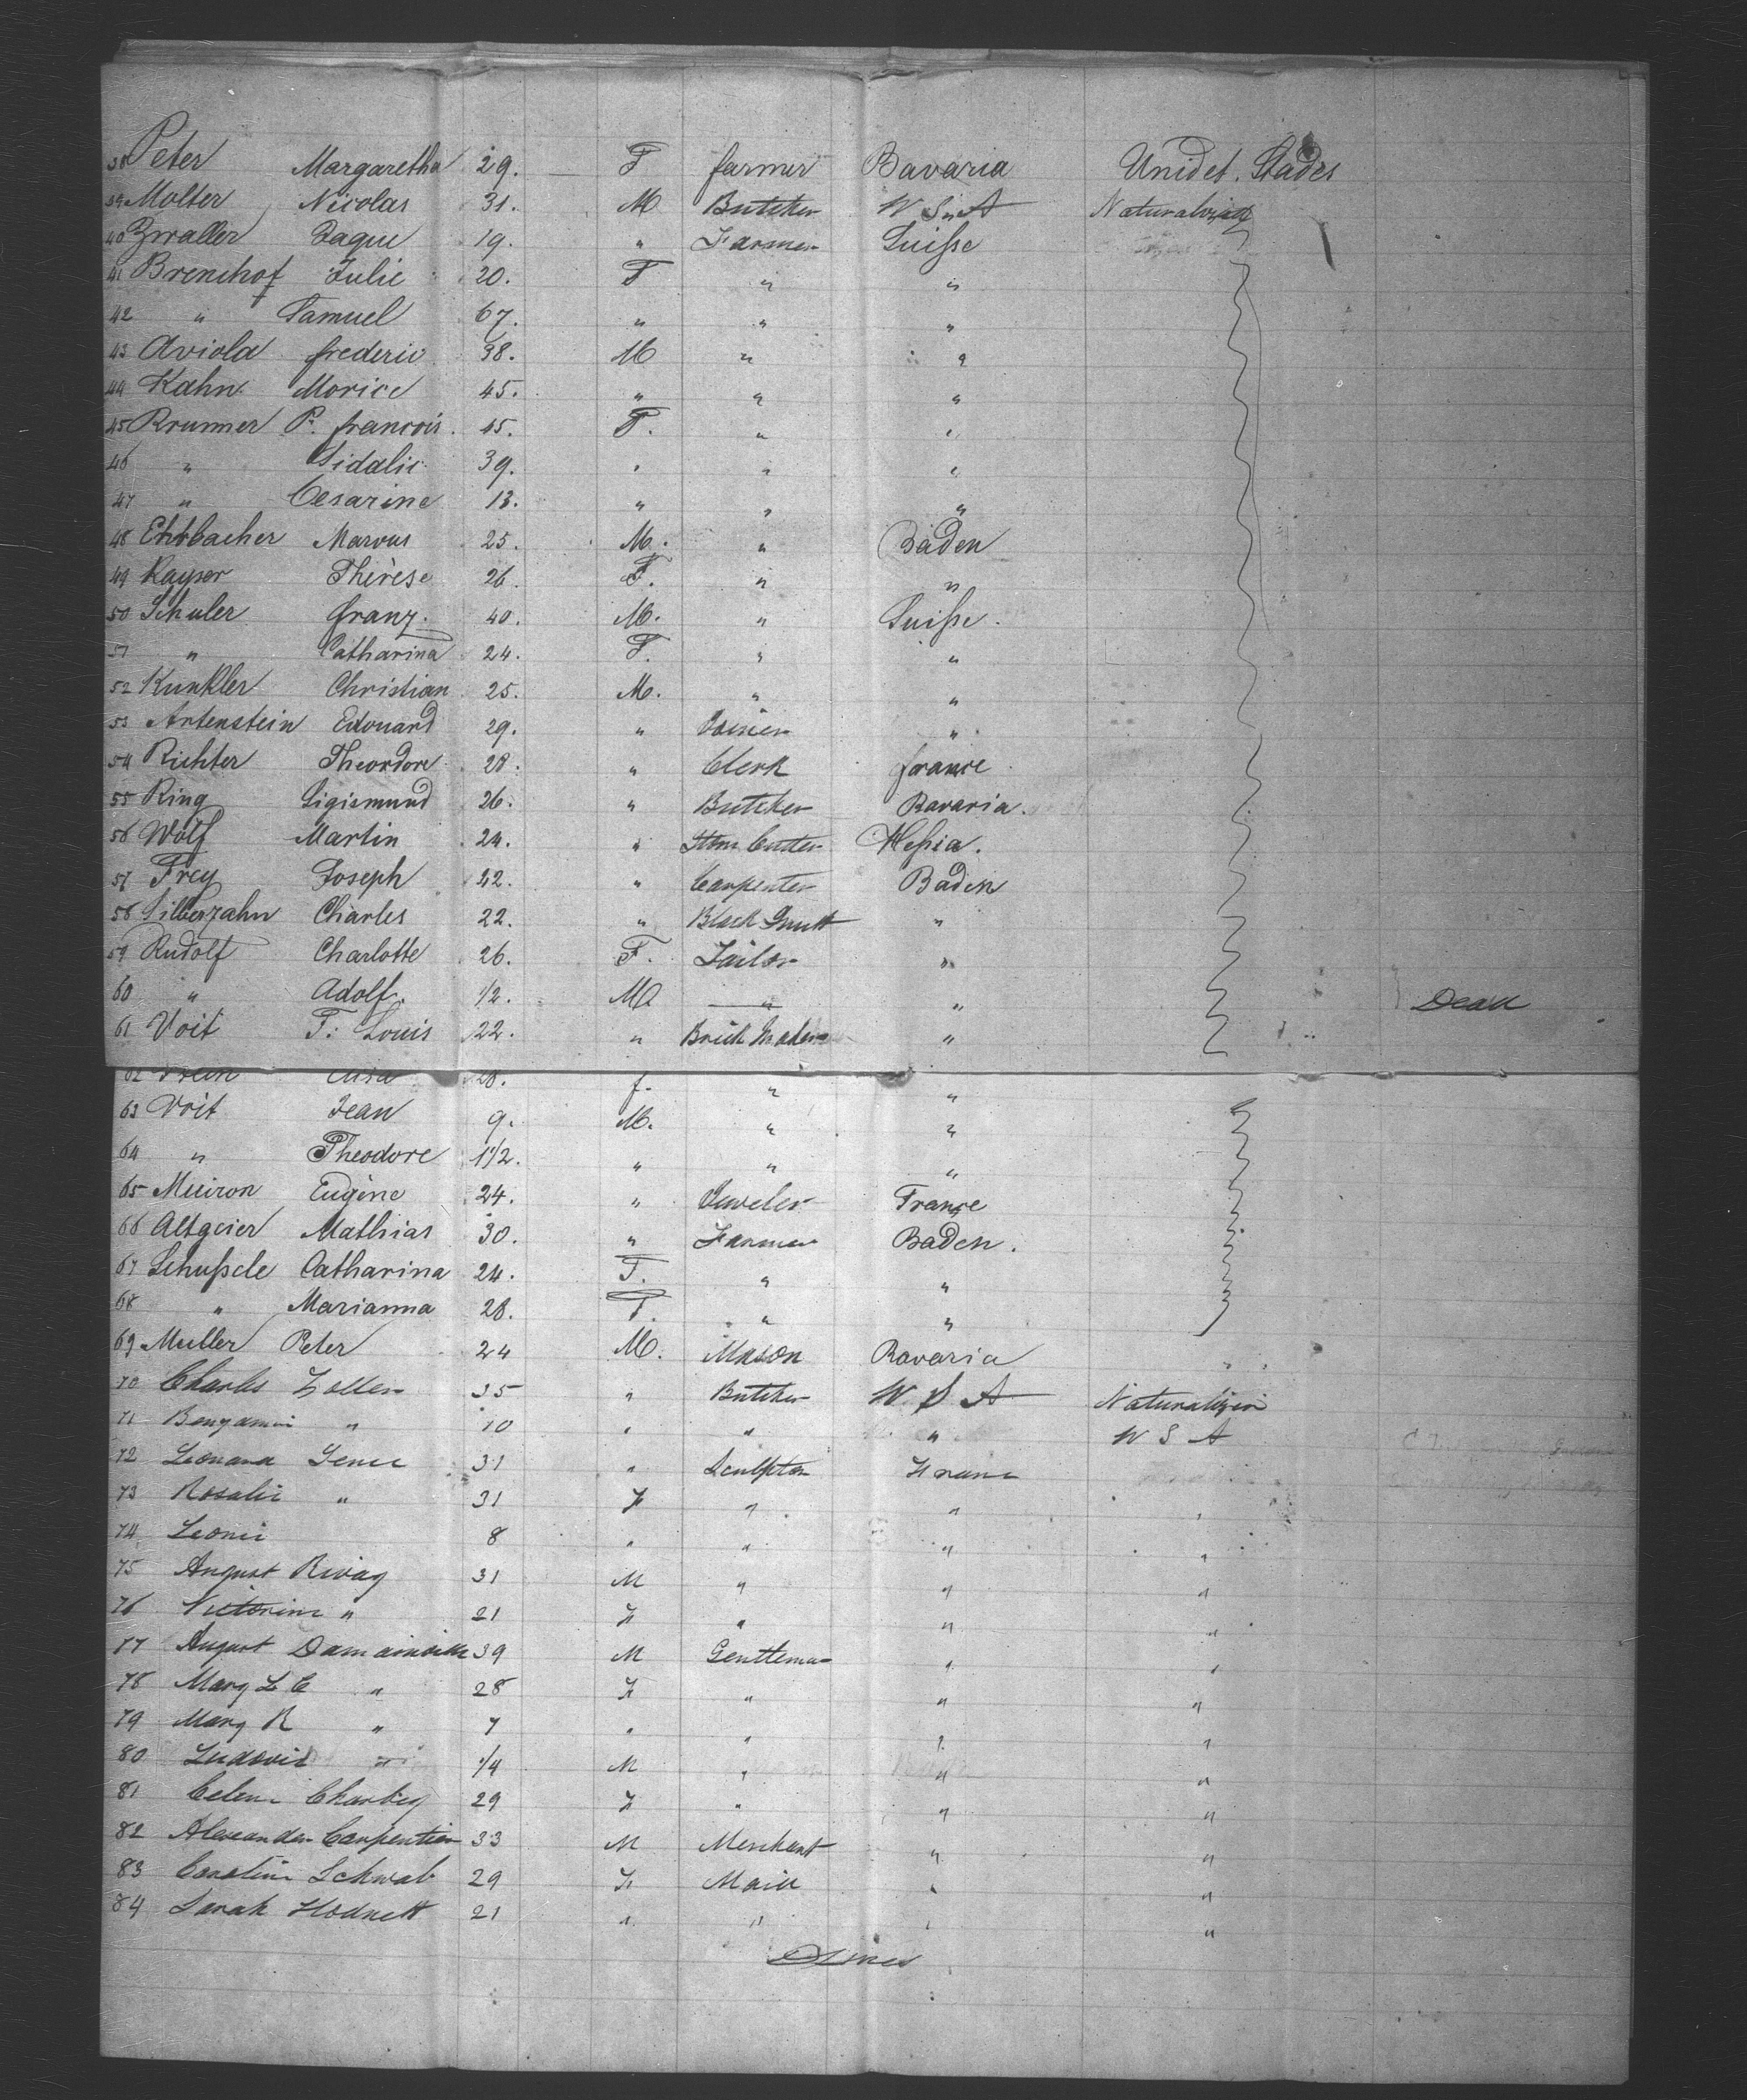 38 Peter Margaretha 29. F farmer Bavaria Unidet. Stades
39 Molter Nicolas 31. M Butcher U S A
40 Zwaller Jaque 19. " Farmer Suisse
41 Brenchof Julie 20. F " "
42 " Samuel 67. " " "
43 Aviola frederic 38. M " "
44 Kahn Morice 45. " " "
45 P. francois. 15. F. " "
46 " Sidalie 39. " " "
47 " Cesarine 13. " " "
48 Marcus 25. M. " Baden
49 Kayser Thérèse 26. F. " "
50 Schuler franz. 40. M. " Suisse.
51 " Catharina 24. F. " "
52 Kunkler Christian 25. M. " "
53 Artenstein Edouard 29. " "
54 Richter Theordore 28. " Clerk france
55 Ring Sigismund 26. " Butcher Bavaria.
56 Wolf Martin 24. " Cutter Hessia.
57 Frey Joseph 32. " Carpenter Baden
58 Silberzahn Charles 22. " "
59 Rudolf Charlotte 26. F. Tailor "
60 " Adolf. 1/2. M " " Dead
61 Voit F. Louis 22. " Brick Maker "
62 28. f. " "
63 Voit Jean 9. M. " "
64 " Theodore 1 1/2. " " "
65 Eugène 24. " Juweler France
66 Altgeier Mathias 30. " Farmer Baden.
67 Schussele Catharina 24. F. " "
68 " Marianna 28. F. " "
69 Muller Peter 24 M. Mason Bavaria " "
70 Charles Zoller 35 " Butcher U S A
71 Benjamin " 10 " " " U S A
72 31 " Sculptor
73 Rosalie " 31 F " " "
74 Leonie 8 " " " "
75 August 31 M " " "
76 Victorine " 21 F " " "
77 August 39 M Gentleman " "
78 Mary L C " 28 F " " "
79 Mary R " 7 " " " "
80 Ludovic " 1/4 M " " "
81 29 F " " "
82 Alexander Carpentier 33 M Merchant " "
83 Caroline Schwab 29 F Maid " "
84 Sarah Hodnett 21 " " " "